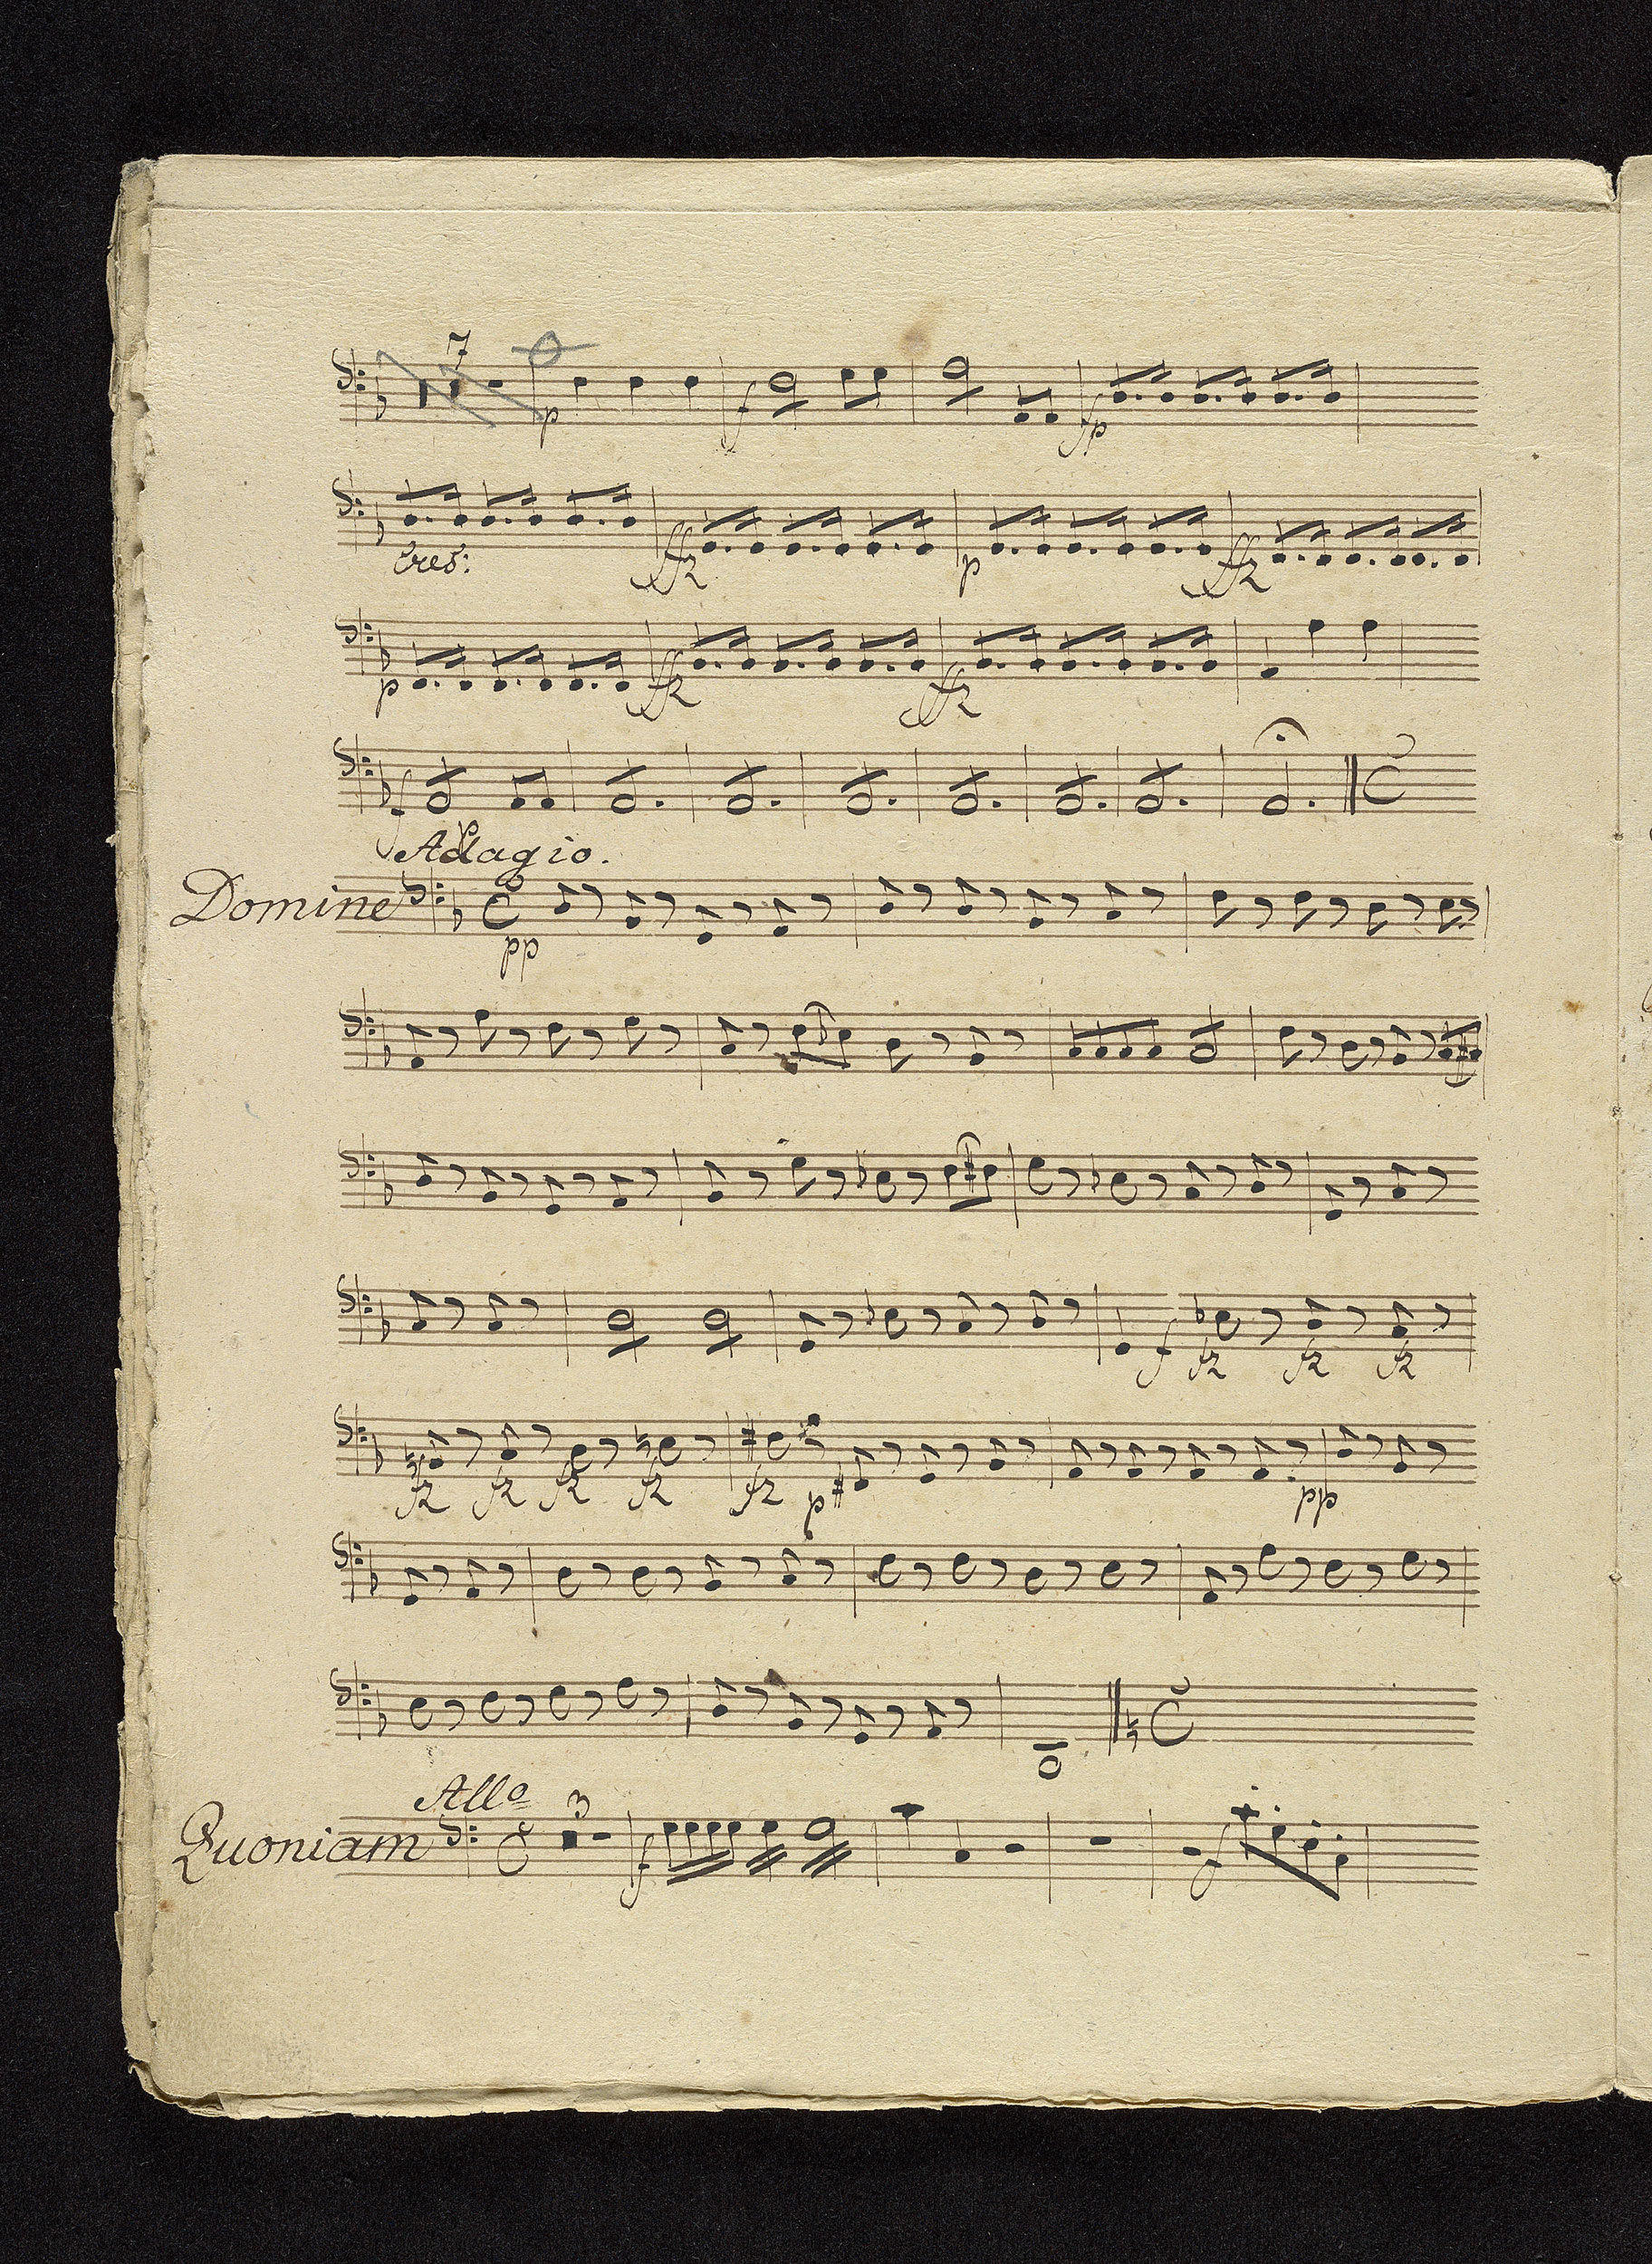 7
p f fp
Cres: ffz p ffz
p ffz ffz
f
Adagio.
Domine
pp
f fz fz fz
fz fz fz fz fz p pp
Allo
Quoniam
3
f f